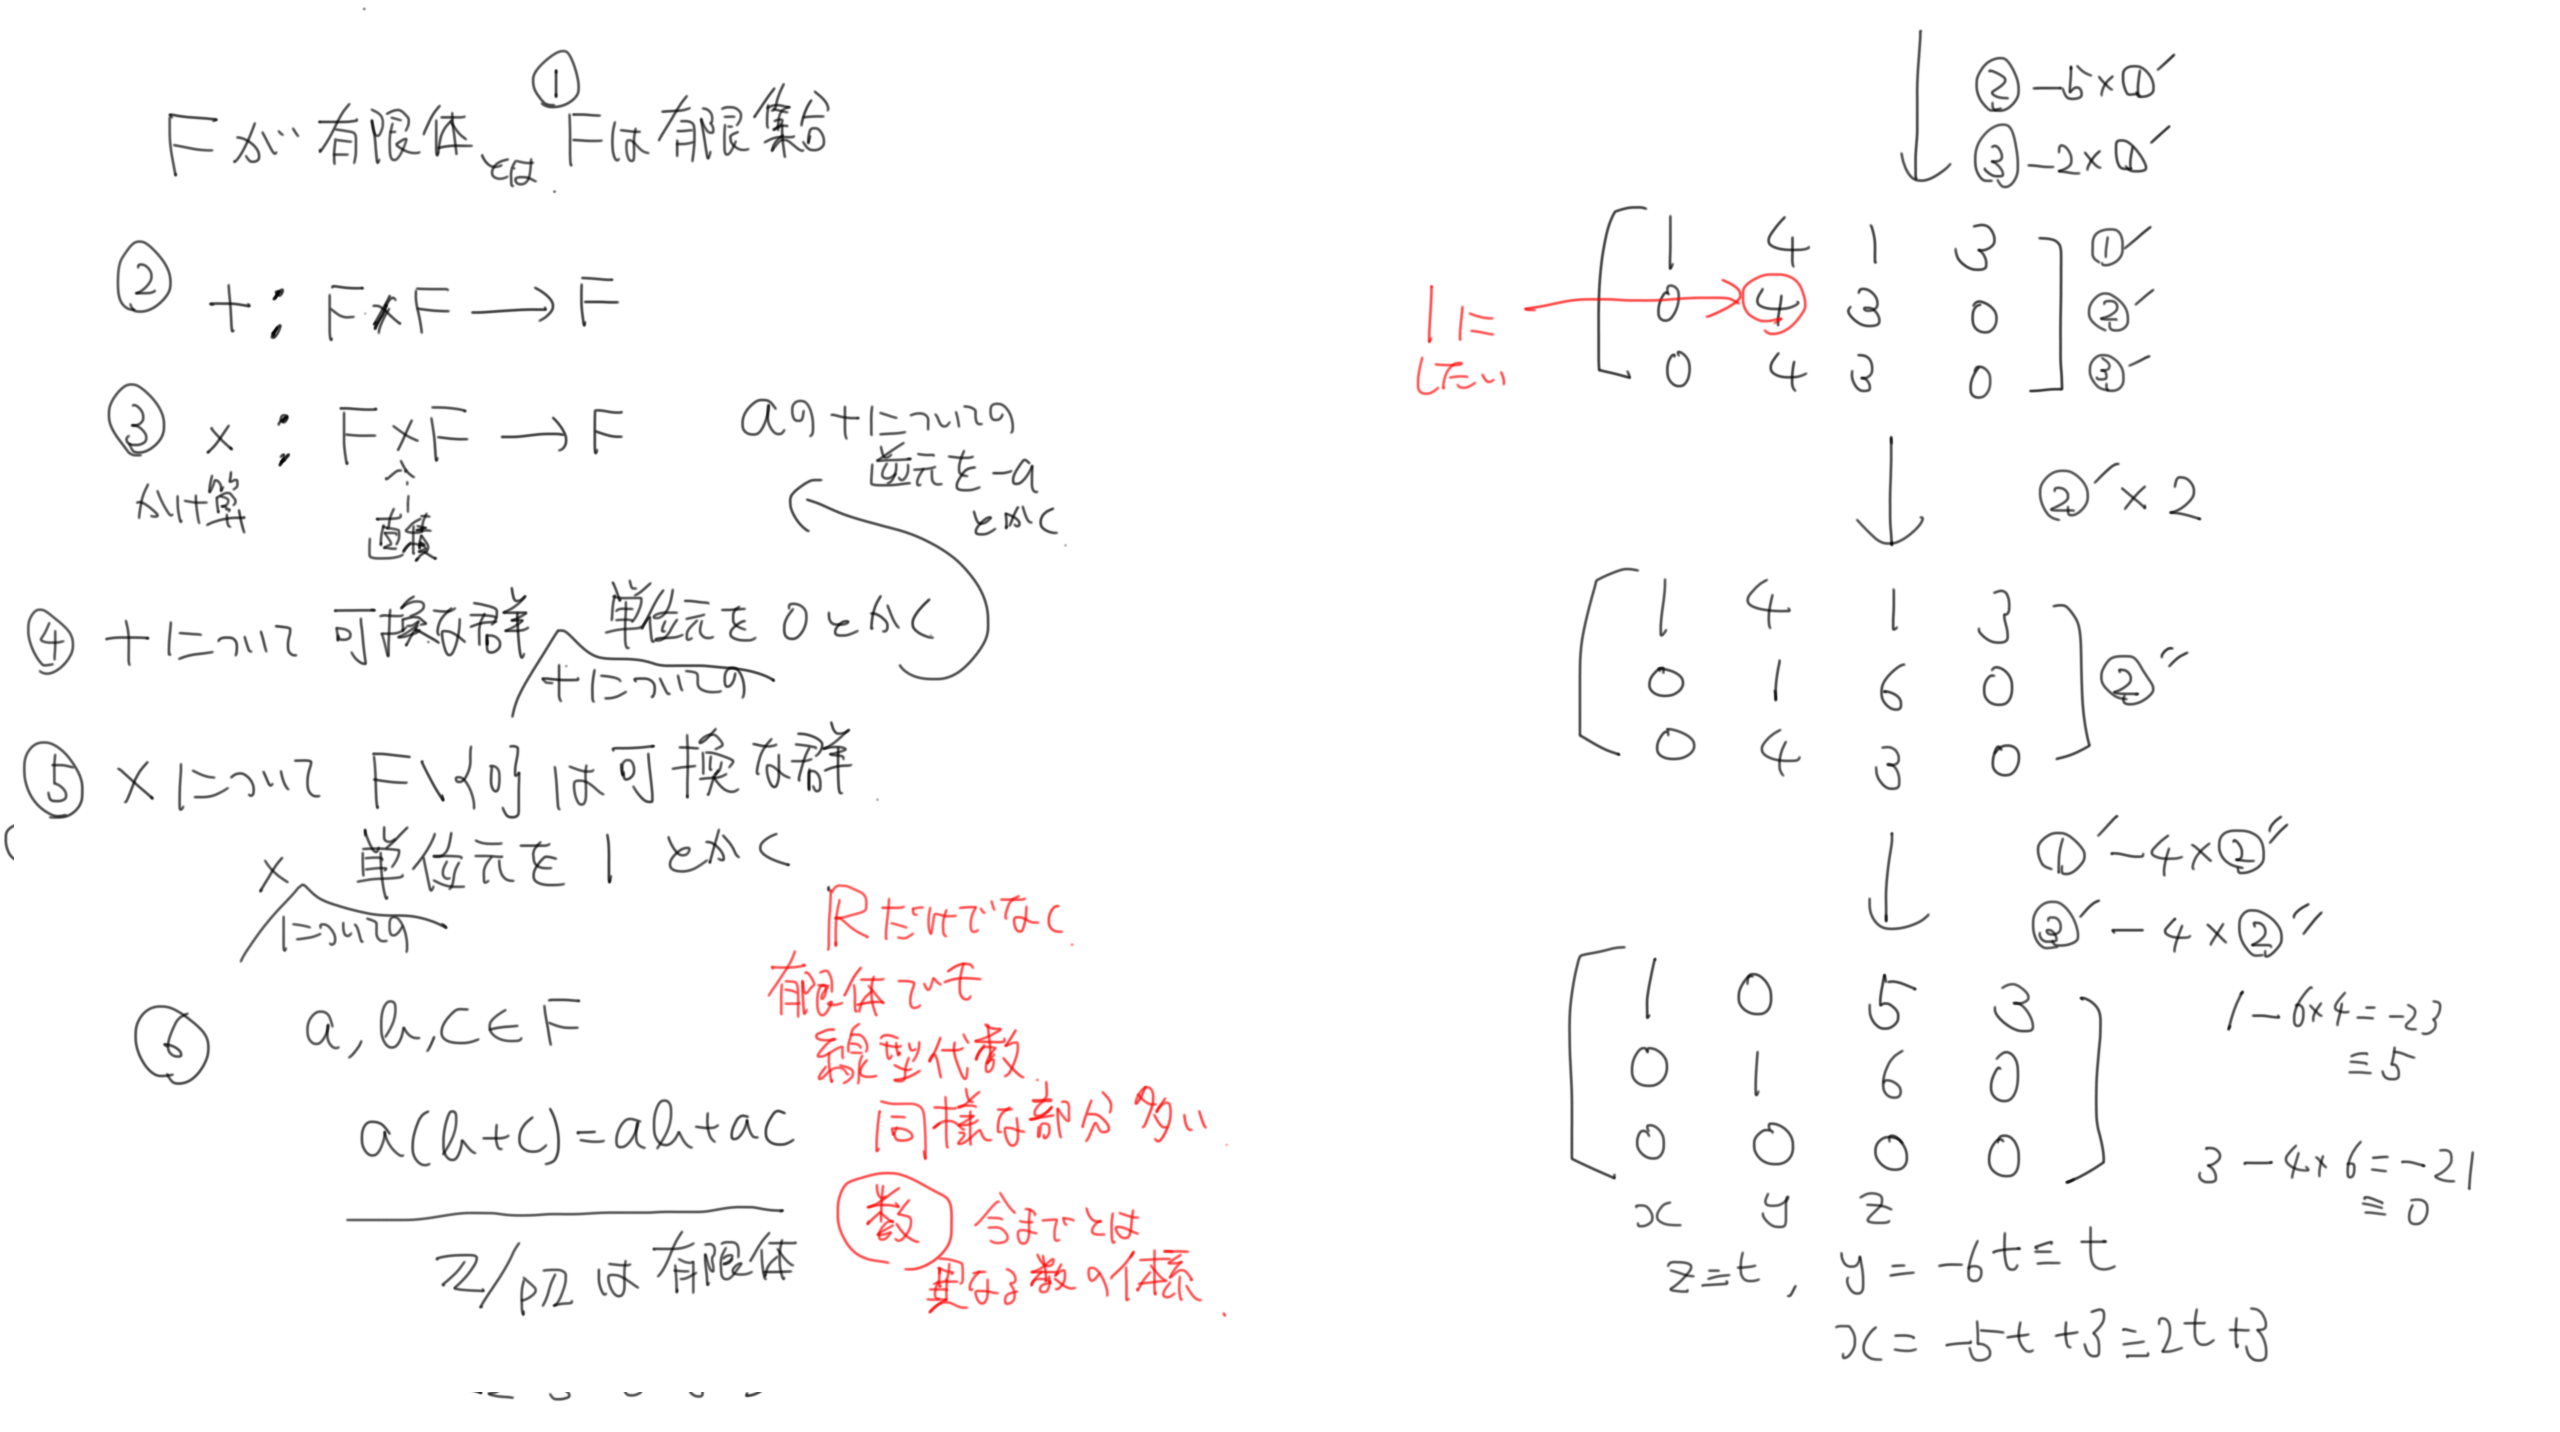 ①
Fが有限体とは Fは有限集合
② +: F×F → F
③ ×: F×F → F
かけ算
直積
aの+についての
逆元を-a
とかく
④ +について可換な群 単位元を0とかく
+についての
⑤ ×について F\{0}は可換な群
× 単位元を1とかく
についての
⑥ a,b,c∈F
a(b+c)=ab+ac
ℤ/pℤは有限体
Rだけでなく
有限体でも
線型代数
同様な部分多い
数 今までとは
異なる数の体系
②-5×①′
③-2×①′
1 4 1 3 ①′
0 4 3 0 ②′
0 4 3 0 ③′
1に
したい
②′×2
1 4 1 3
0 1 6 0 ②″
0 4 3 0
①′-4×②″
③′-4×②″
1 0 5 3
0 1 6 0
0 0 0 0
x y z
1-6×4=-23
≡5
3-4×6=-21
≡0
z≡t, y=-6t≡t
x=-5t+3≡2t+3